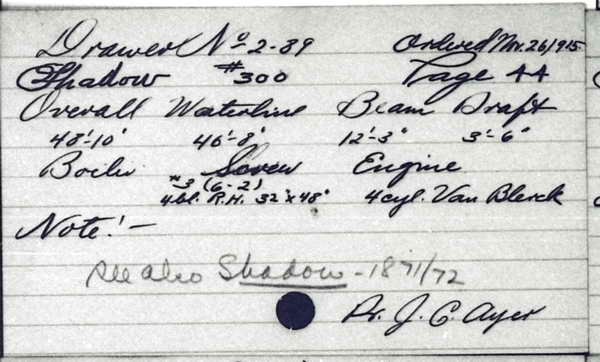 Drawer No 2-89 Ordered Nov. 26/1915
Shadow #300 Page 44
Overall Waterline Beam Draft
48'-10" 46'-8" 12'-3" 3'-6"
Boiler Screw Engine
#3 (6-2)
4bl. R.H. 32"x48" 4cyl. Van Blerck
Note!-
See also Shadow - 1871/72
Dr. J. C. Ayer